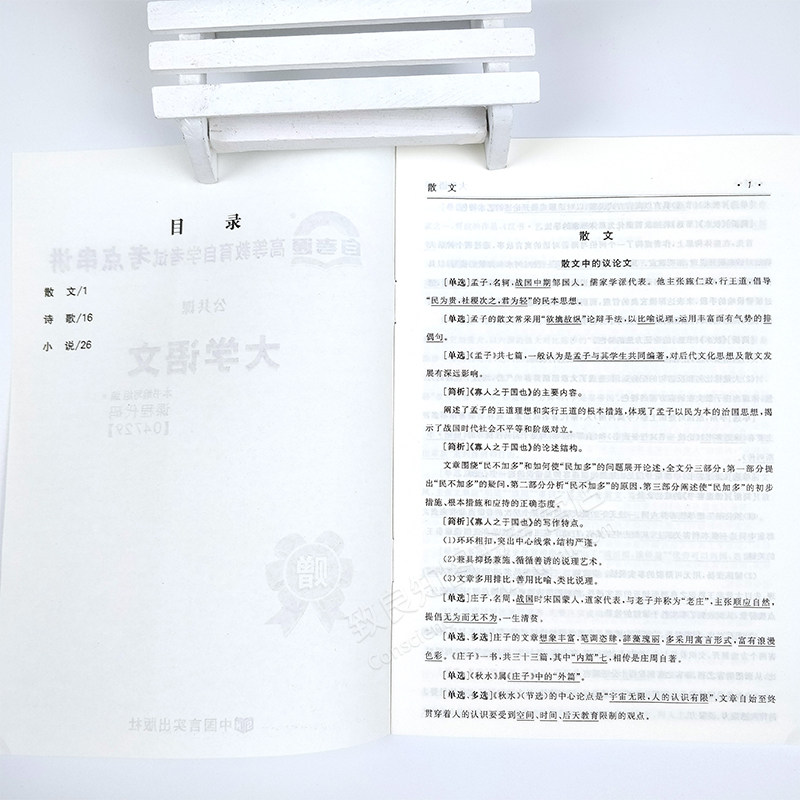 目 录
散 文/1
诗 歌/16
小 说/26
自考通
高等教育自学考试考点串讲
公共课
大学语文
课程代码
【04729】
赠
中国言实出版社
散 文
·1·
散 文
散文中的议论文
[单选]孟子,名轲,战国中期邹国人。儒家学派代表。他主张施仁政,行王道,倡导
“民为贵,社稷次之,君为轻”的民本思想。
[单选]孟子的散文常采用“欲擒故纵”论辩手法,以比喻说理,运用丰富而有气势的排
偶句。
[单选]《孟子》共七篇,一般认为是孟子与其学生共同编著,对后代文化思想及散文发
展有深远影响。
[简析]《寡人之于国也》的主要内容。
阐述了孟子的王道理想和实行王道的根本措施,体现了孟子以民为本的治国思想,揭
示了战国时代社会不平等和阶级对立。
[简析]《寡人之于国也》的论述结构。
文章围绕“民不加多”和如何使“民加多”的问题展开论述,全文分三部分:第一部分提
出“民不加多”的疑问,第二部分分析“民不加多”的原因,第三部分阐述使“民加多”的初步
措施、根本措施和应持的正确态度。
[简析]《寡人之于国也》的写作特点。
(1)环环相扣,突出中心线索,结构严谨。
(2)兼具抑扬兼施、循循善诱的说理艺术。
(3)文章多用排比,善用比喻、类比说理。
[单选]庄子,名周,战国时宋国蒙人,道家代表,与老子并称为“老庄”,主张顺应自然,
提倡无为而无不为,一生清贫。
[单选、多选]庄子的文章想象丰富,笔调恣肆,辞藻瑰丽,多采用寓言形式,富有浪漫
色彩。《庄子》一书,共三十三篇,其中“内篇”七,相传是庄周自著。
[单选]《秋水》属《庄子》中的“外篇”。
[单选、多选]《秋水》(节选)的中心论点是“宇宙无限,人的认识有限”,文章自始至终
贯穿着人的认识要受到空间、时间、后天教育限制的观点。